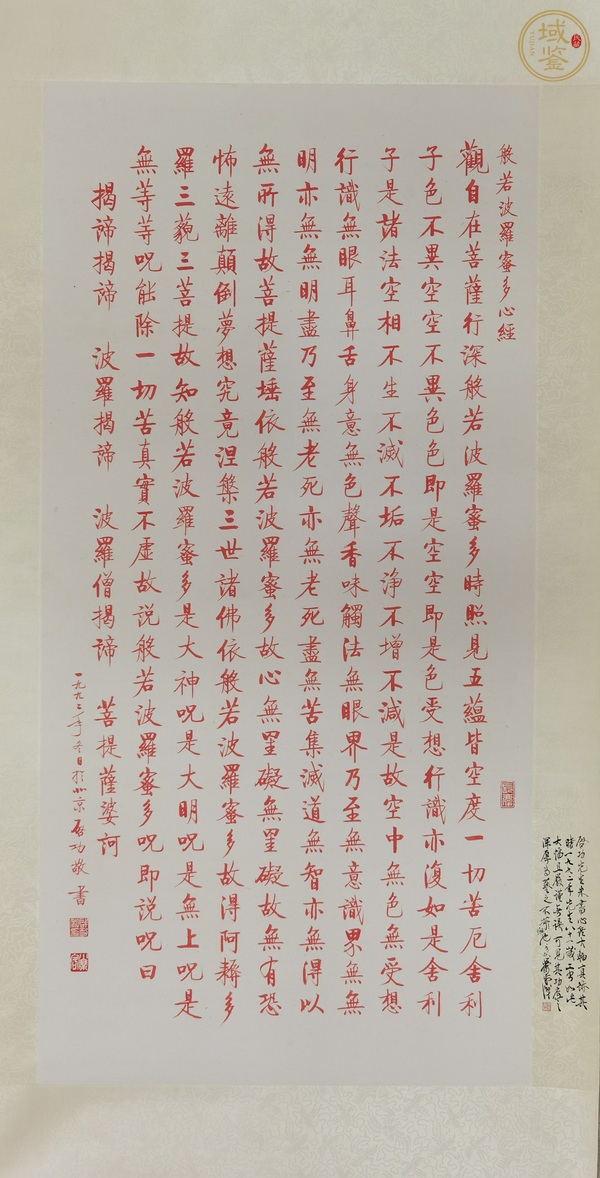 域鉴
YUJIAN
般若波羅蜜多心經
觀自在菩薩行深般若波羅蜜多時照見五蘊皆空度一切苦厄舍利
子色不異空空不異色色即是空空即是色受想行識亦復如是舍利
子是諸法空相不生不滅不垢不淨不增不減是故空中無色無受想
行識無眼耳鼻舌身意無色聲香味觸法無眼界乃至無意識界無無
明亦無無明盡乃至無老死亦無老死盡無苦集滅道無智亦無得以
無所得故菩提薩埵依般若波羅蜜多故心無罣礙無罣礙故無有恐
怖遠離顛倒夢想究竟涅槃三世諸佛依般若波羅蜜多故得阿耨多
羅三藐三菩提故知般若波羅蜜多是大神呪是大明呪是無上呪是
無等等呪能除一切苦真實不虛故説般若波羅蜜多呪即説呪曰
揭諦揭諦 波羅揭諦 波羅僧揭諦 菩提薩婆訶
一九九二年冬日於北京 啓功敬書
啓功先生朱書心經大軸真跡其
時一九九二年先生八十一歲
大幅且嚴謹無誤可見其功底之
深厚